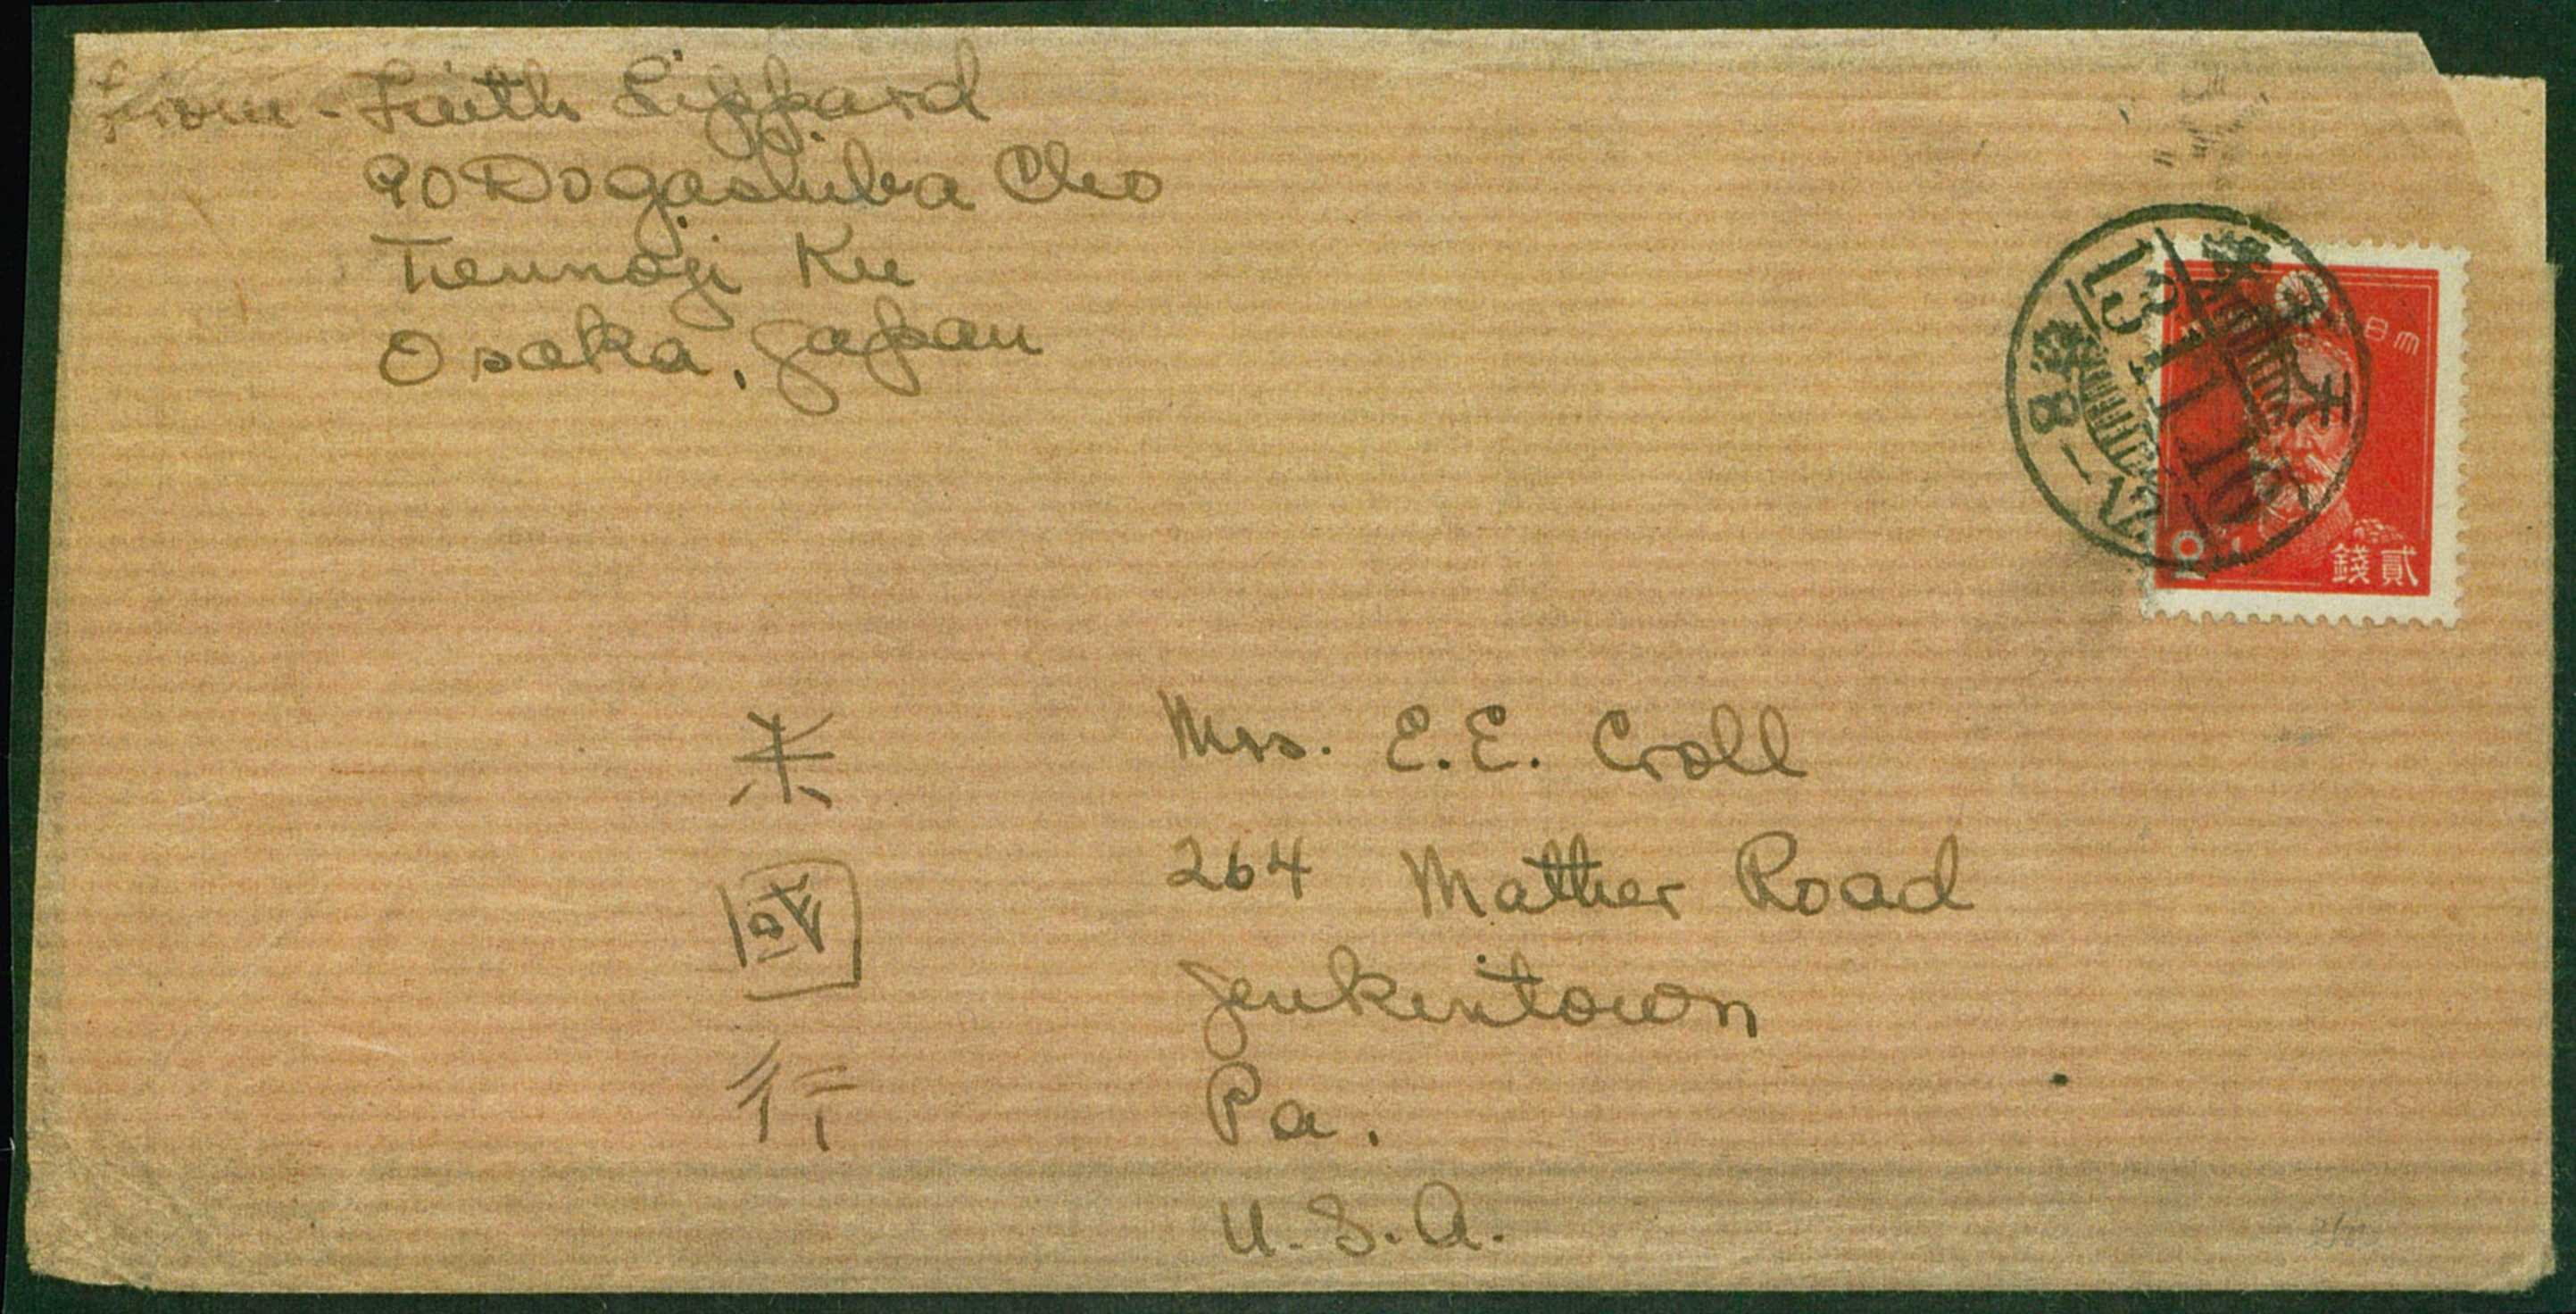 from - Faith Lippard
90 Dogashiba Cho
Tennoji Ku
Osaka, Japan
13.11.16
后8-12
日 本
貳錢
米
國
行
Mrs. E.E. Croll
264 Mather Road
Jenkintown
Pa.
U.S.A.